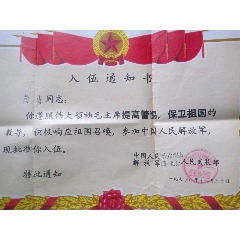 入伍通知书
同志：
你遵照伟大领袖毛主席提高警惕，保卫祖国的
教导，积极响应祖国召唤，参加中国人民解放军，
现批准你入伍。
特此通知
中国人民
解放军
人民武装部
一九七